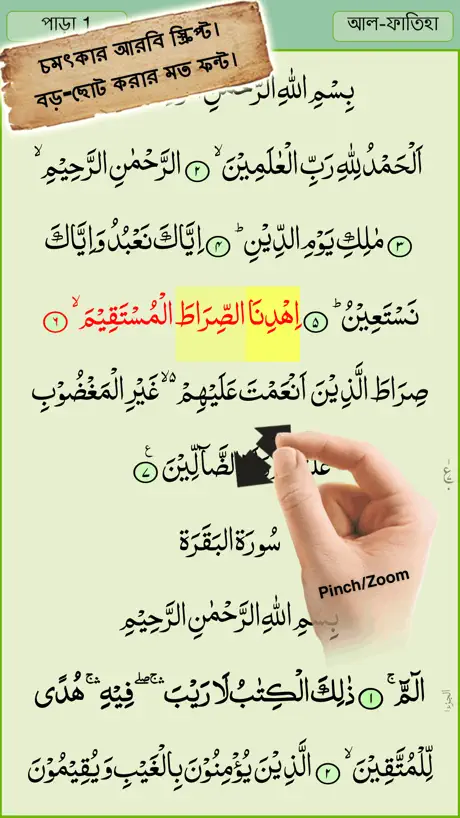 পাড়া 1
আল-ফাতিহা
চমৎকার আরবি স্ক্রিপ্ট।
বড়-ছোট করার মত ফন্ট।
بِسْمِ اللهِ الرَّحْمٰنِ
اَلْحَمْدُ لِلّٰهِ رَبِّ الْعٰلَمِيْنَ ۙ ۲ الرَّحْمٰنِ الرَّحِيْمِ ۙ
۳ مٰلِكِ يَوْمِ الدِّيْنِ ؕ ۴ اِيَّاكَ نَعْبُدُ وَاِيَّاكَ
نَسْتَعِيْنُ ؕ ۵ اِهْدِنَا الصِّرَاطَ الْمُسْتَقِيْمَ ۙ ۶
صِرَاطَ الَّذِيْنَ اَنْعَمْتَ عَلَيْهِمْ ۙ۵ غَيْرِ الْمَغْضُوْبِ
الضَّآلِّيْنَ ۷ ع
سُورَة البَقَرَة
بِسْمِ اللهِ الرَّحْمٰنِ الرَّحِيْمِ
Pinch/Zoom
الٓمّٓ ۚ ۱ ذٰلِكَ الْكِتٰبُ لَا رَيْبَ ۛۖ ۚ فِيْهِ ۛۚ هُدًى
لِّلْمُتَّقِيْنَ ۙ ۲ الَّذِيْنَ يُؤْمِنُوْنَ بِالْغَيْبِ وَيُقِيْمُوْنَ